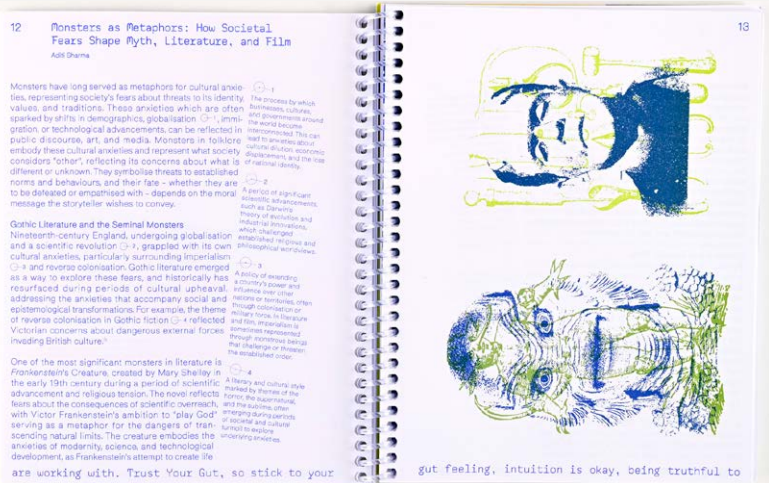 12
Monsters as Metaphors: How Societal
Fears Shape Myth, Literature, and Film
Aditi Sharma
Monsters have long served as metaphors for cultural anxie-
ties, representing society's fears about threats to its identity,
values, and traditions. These anxieties which are often
sparked by shifts in demographics, globalisation 1, immi-
gration, or technological advancements, can be reflected in
public discourse, art, and media. Monsters in folklore
embody these cultural anxieties and represent what society
considers "other", reflecting its concerns about what is
different or unknown. They symbolise threats to established
norms and behaviours, and their fate – whether they are
to be defeated or empathised with – depends on the moral
message the storyteller wishes to convey.
Gothic Literature and the Seminal Monsters
Nineteenth-century England, undergoing globalisation
and a scientific revolution 2, grappled with its own
cultural anxieties, particularly surrounding imperialism
3 and reverse colonisation. Gothic literature emerged
as a way to explore these fears, and historically has
resurfaced during periods of cultural upheaval,
addressing the anxieties that accompany social and
epistemological transformations. For example, the theme
of reverse colonisation in Gothic fiction 4 reflected
Victorian concerns about dangerous external forces
invading British culture.
One of the most significant monsters in literature is
Frankenstein's Creature, created by Mary Shelley in
the early 19th century during a period of scientific
advancement and religious tension. The novel reflects
fears about the consequences of scientific overreach,
with Victor Frankenstein's ambition to "play God"
serving as a metaphor for the dangers of tran-
scending natural limits. The creature embodies the
anxieties of modernity, science, and technological
development, as Frankenstein's attempt to create life
1
The process by which
businesses, cultures,
and governments around
the world become
interconnected. This can
lead to anxieties about
cultural dilution, economic
displacement, and the loss
of national identity.
2
A period of significant
scientific advancements,
such as Darwin's
theory of evolution and
industrial innovations,
which challenged
established religious and
philosophical worldviews.
3
A policy of extending
a country's power and
influence over other
nations or territories, often
through colonisation or
military force. In literature
and film, imperialism is
sometimes represented
through monstrous beings
that challenge or threaten
the established order.
4
A literary and cultural style
marked by themes of the
horror, the supernatural,
and the sublime, often
emerging during periods
of societal and cultural
turmoil to explore
underlying anxieties.
are working with. Trust Your Gut, so stick to your
13
gut feeling, intuition is okay, being truthful to